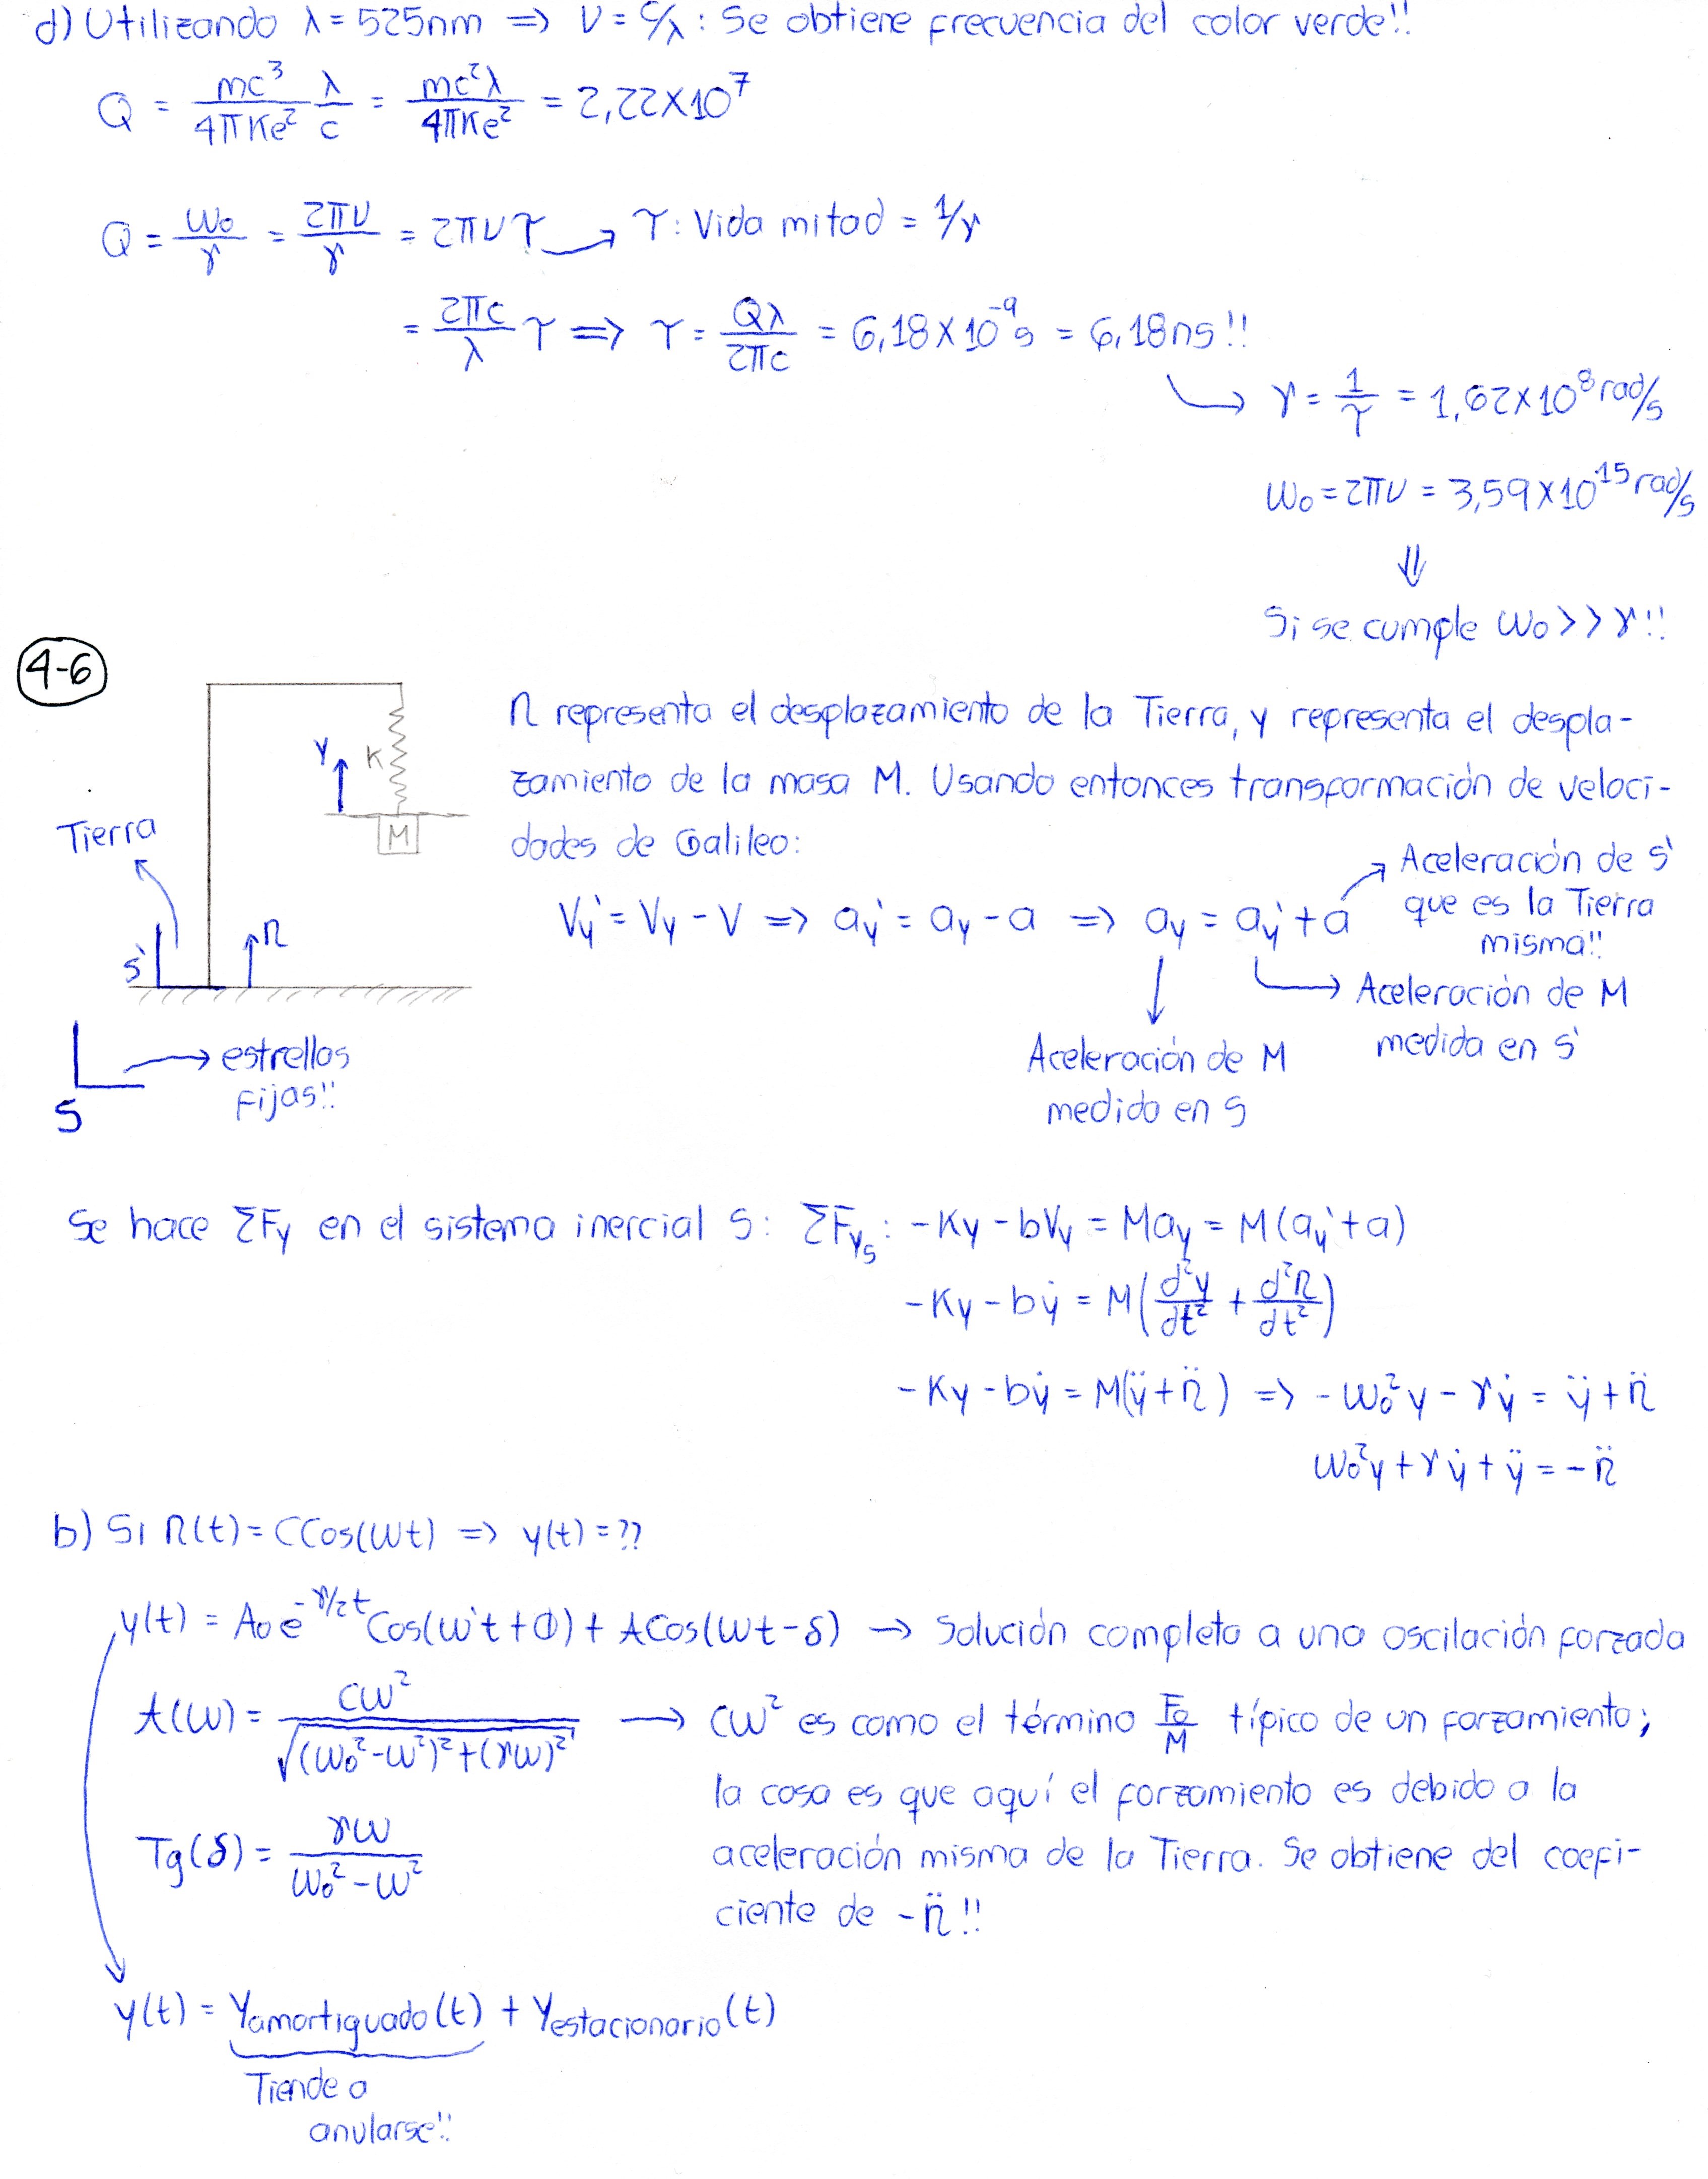 d) Utilizando λ = 525nm => ν = c/λ : Se obtiene frecuencia del color verde!!
Q = mc³/4πKe² λ/c = mc²λ/4πKe² = 2,22×10⁷
Q = ω₀/γ = 2πν/γ = 2πντ → τ: Vida mitad = 1/γ
= 2πc/λ τ => τ = Qλ/2πc = 6,18×10⁻⁹s = 6,18ns!!
→ γ = 1/τ = 1,62×10⁸ rad/s
ω₀ = 2πν = 3,59×10¹⁵ rad/s
⇓
Si se cumple ω₀ >> γ!!
4-6
η representa el desplazamiento de la Tierra, y representa el despla-
zamiento de la masa M. Usando entonces transformación de veloci-
dades de Galileo:
Y
K
M
Tierra
η
S'
S
→ estrellas
fijas!!
Vy' = Vy - V => ay' = ay - a => ay = ay' + a
Aceleración de S'
que es la Tierra
misma!!
Aceleración de M
medida en S'
Aceleración de M
medida en S
Se hace ΣFy en el sistema inercial S: ΣFys: -Ky - bVy = May = M(ay' + a)
-Ky - bẏ = M(d²y/dt² + d²η/dt²)
-Ky - bẏ = M(ÿ + η̈) => -ω₀²y - γẏ = ÿ + η̈
ω₀²y + γẏ + ÿ = -η̈
b) Si η(t) = CCos(ωt) => y(t) = ??
y(t) = A₀e^(-γ/2 t)Cos(ω't + Φ) + ACos(ωt - δ) → Solución completa a una oscilación forzada
A(ω) = Cω²/√((ω₀² - ω²)² + (γω)²) → Cω² es como el término F₀/M típico de un forzamiento;
la cosa es que aquí el forzamiento es debido a la
Tg(δ) = γω/ω₀² - ω² aceleración misma de la Tierra. Se obtiene del coefi-
ciente de -η̈!!
y(t) = Yamortiguado(t) + Yestacionario(t)
Tiende a
anularse!!